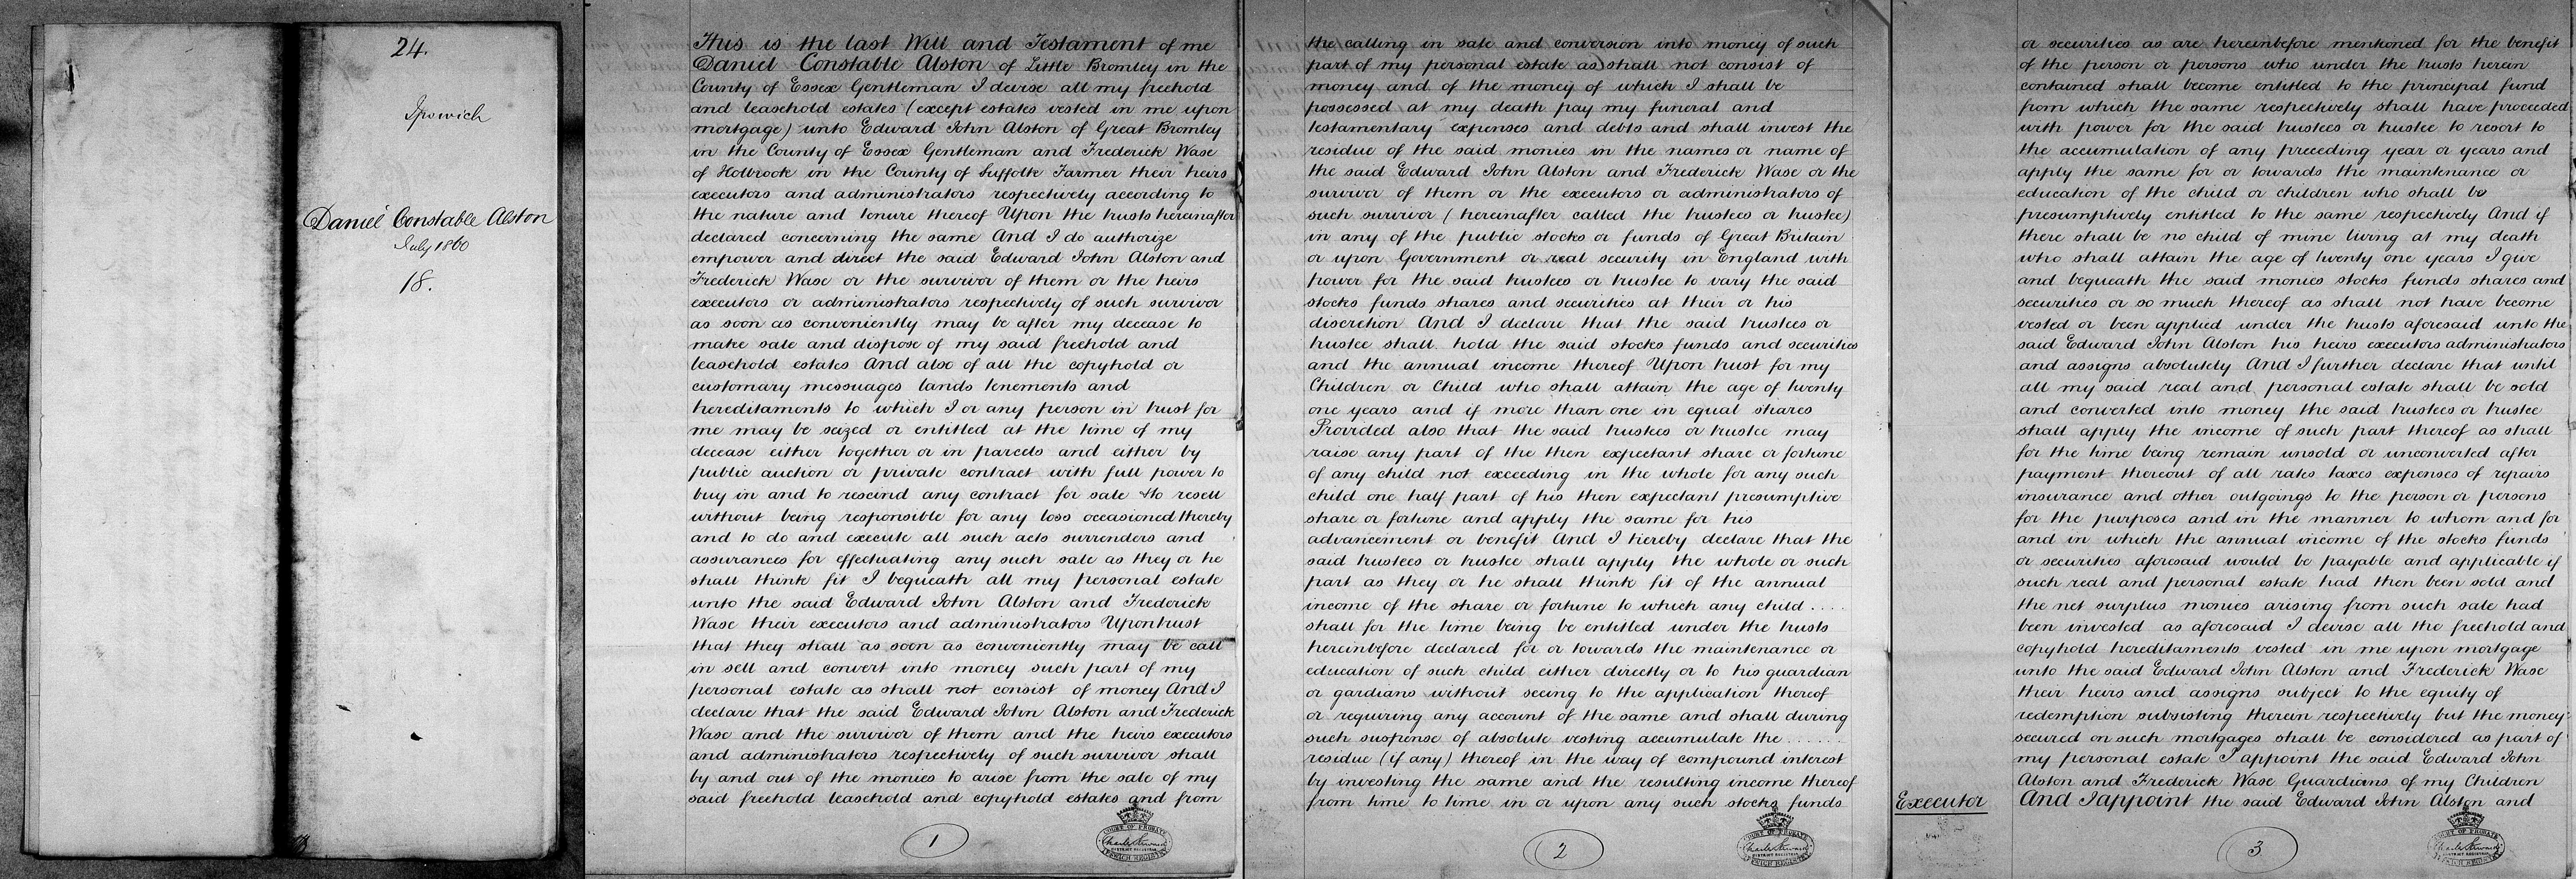 24.
Ipswich
Daniel Constable Alston
July 1860
18.
This is the last Will and Testament of me
Daniel Constable Alston of Little Bromley in the
County of Essex Gentleman I devise all my freehold
and leasehold estates (except estates vested in me upon
mortgage) unto Edward John Alston of Great Bromley
in the County of Essex Gentleman and Frederick Wase
of Holbrook in the County of Suffolk Farmer their heirs
executors and administrators respectively according to
the nature and tenure thereof Upon the trusts hereinafter
declared concerning the same And I do authorize
empower and direct the said Edward John Alston and
Frederick Wase or the survivor of them or the heirs
executors or administrators respectively of such survivor
as soon as conveniently may be after my decease to
make sale and dispose of my said freehold and
leasehold estates And also of all the copyhold or
customary messuages lands tenements and
hereditaments to which I or any person in trust for
me may be seized or entitled at the time of my
decease either together or in parcels and either by
public auction or private contract with full power to
buy in and to rescind any contract for sale & to resell
without being responsible for any loss occasioned thereby
and to do and execute all such acts surrenders and
assurances for effectuating any such sale as they or he
shall think fit I bequeath all my personal estate
unto the said Edward John Alston and Frederick
Wase their executors and administrators Upon trust
that they shall as soon as conveniently may be call
in sell and convert into money such part of my
personal estate as shall not consist of money And I
declare that the said Edward John Alston and Frederick
Wase and the survivor of them and the heirs executors
and administrators respectively of such survivor shall
by and out of the monies to arise from the sale of my
said freehold leasehold and copyhold estates and from
1
COURT OF PROBATE
Charles Steward
DISTRICT REGISTRAR
IPSWICH REGISTRY
the calling in sale and conversion into money of such
part of my personal estate as shall not consist of
money and of the money of which I shall be
possessed at my death pay my funeral and
testamentary expenses and debts and shall invest the
residue of the said monies in the names or name of
the said Edward John Alston and Frederick Wase or the
survivor of them or the executors or administrators of
such survivor (hereinafter called the trustees or trustee)
in any of the public stocks or funds of Great Britain
or upon Government or real security in England with
power for the said trustees or trustee to vary the said
stocks funds shares and securities at their or his
discretion And I declare that the said trustees or
trustee shall hold the said stocks funds and securities
and the annual income thereof Upon trust for my
Children or Child who shall attain the age of twenty
one years and if more than one in equal shares
Provided also that the said trustees or trustee may
raise any part of the then expectant share or fortune
of any child not exceeding in the whole for any such
child one half part of his then expectant presumptive
share or fortune and apply the same for his
advancement or benefit And I hereby declare that the
said trustees or trustee shall apply the whole or such
part as they or he shall think fit of the annual
income of the share or fortune to which any child ....
shall for the time being be entitled under the trusts
hereinbefore declared for or towards the maintenance or
education of such child either directly or to his guardian
or gardians without seeing to the application thereof
or requiring any account of the same and shall during
such suspense of absolute vesting accumulate the ......
residue (if any) thereof in the way of compound interest
by investing the same and the resulting income thereof
from time to time in or upon any such stocks funds
2
COURT OF PROBATE
Charles Steward
DISTRICT REGISTRAR
IPSWICH REGISTRY
or securities as are hereinbefore mentioned for the benefit
of the person or persons who under the trusts herein
contained shall become entitled to the principal fund
from which the same respectively shall have proceeded
with power for the said trustees or trustee to resort to
the accumulation of any preceding year or years and
apply the same for or towards the maintenance or
education of the child or children who shall be
presumptively entitled to the same respectively And if
there shall be no child of mine living at my death
who shall attain the age of twenty one years I give
and bequeath the said monies stocks funds shares and
securities or so much thereof as shall not have become
vested or been applied under the trusts aforesaid unto the
said Edward John Alston his heirs executors administrators
and assigns absolutely And I further declare that until
all my said real and personal estate shall be sold
and converted into money the said trustees or trustee
shall apply the income of such part thereof as shall
for the time being remain unsold or unconverted after
payment thereout of all rates taxes expenses of repairs
insurance and other outgoings to the person or persons
for the purposes and in the manner to whom and for
and in which the annual income of the stocks funds
or securities aforesaid would be payable and applicable if
such real and personal estate had then been sold and
the net surplus monies arising from such sale had
been invested as aforesaid I devise all the freehold and
copyhold hereditaments vested in me upon mortgage
unto the said Edward John Alston and Frederick Wase
their heirs and assigns subject to the equity of
redemption subsisting therein respectively but the money
secured on such mortgages shall be considered as part of
my personal estate I appoint the said Edward John
Alston and Frederick Wase Guardians of my Children
Executor And I appoint the said Edward John Alston and
3
COURT OF PROBATE
Charles Steward
DISTRICT REGISTRAR
IPSWICH REGISTRY